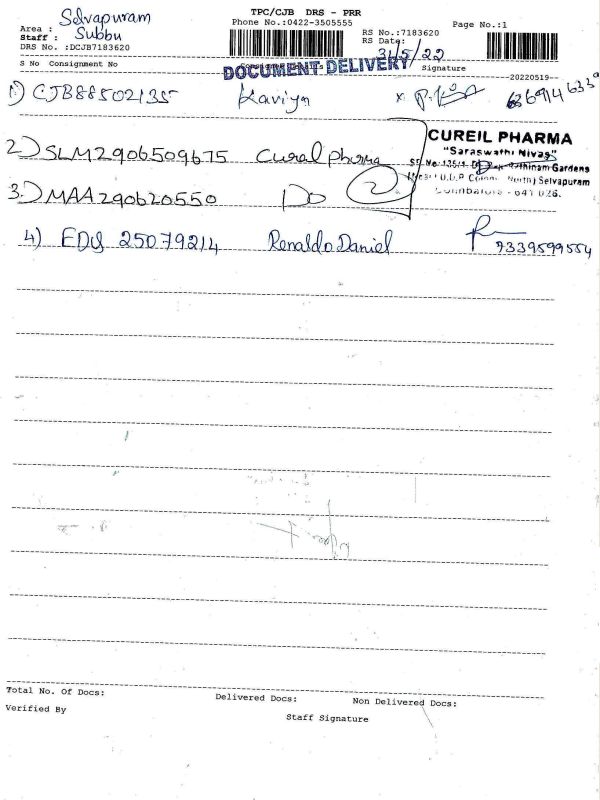 TPC/CJB DRS - PRR
Area : Selvapuram
Phone No.:0422-3505555
Page No.:1
Staff : Subbu
RS No.:7183620
DRS No. :DCJB7183620
RS Date: 31/5/22
S No Consignment No
DOCUMENT DELIVERY
Signature
20220519
1) CJB88502135 Kaviya
2) SLM2906509675 Cural pharma
CUREIL PHARMA
"Saraswathi Nivas"
Rathinam Gardens
Selvapuram
Coimbatore - 641 026.
3) MAA290620550 Do 2
4) EDY 25079214 Renaldo Daniel 9339599554
Total No. Of Docs:
Delivered Docs:
Non Delivered Docs:
Verified By
Staff Signature